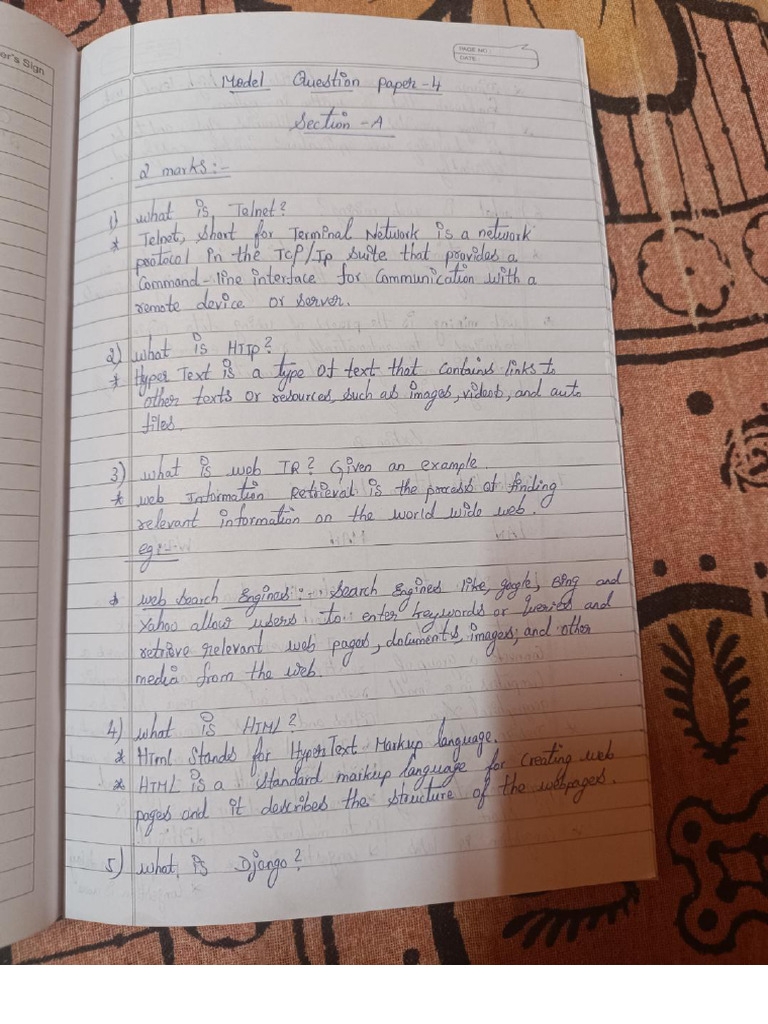 er's Sign
PAGE NO.:
DATE:
Model Question paper-4
Section -A
2 marks:-
1) what is Telnet?
* Telnet, short for Terminal Network is a network
protocol in the TCP/Ip suite that provides a
Command-line interface for communication with a
remote device or server.
2) what is HTTp?
* Hyper Text is a type of text that contains links to
other texts or resources, such as images, videos, and auto
files.
3) what is web IR? Given an example.
* web Information Retrieval is the process of finding
relevant information on the world wide web.
eg:-
* web search Engines:- search Engines like, google, Bing and
Yahoo allow users to enter keywords or queries and
retrieve relevant web pages, documents, images, and other
media from the web.
4) what is HTML?
* Html Stands for HyperText Markup language.
* HTML is a standard markup language for creating web
pages and it describes the structure of the webpages.
5) what is Django?